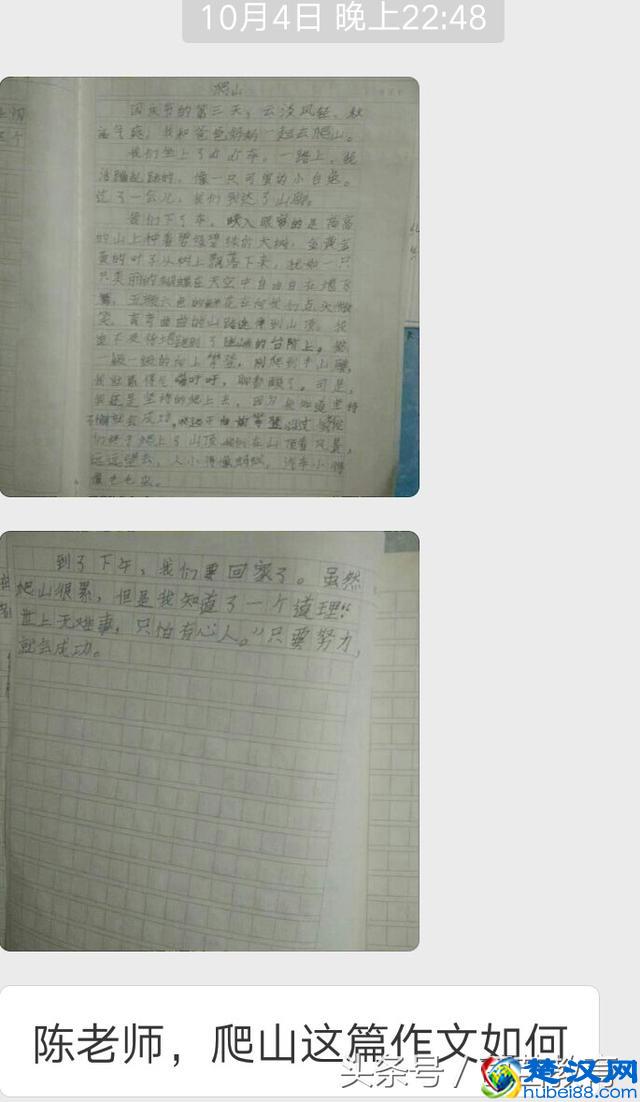 10月4日 晚上22:48
爬山
国庆节的第三天，云淡风轻，秋
高气爽，我和爸爸妈妈一起去爬山。
我们坐上了 车，一路上，我
活蹦乱跳的，像一只可爱的小白兔。
过了一会儿，我们到达了山脚。
我们下了车，映入眼帘的是高高
的山上种着碧绿碧绿的大树，金黄金
黄的叶子从树上飘落下来，犹如一只
只美丽的蝴蝶在天空中自由自在
五颜六色的鲜花在向我们点头微
笑，弯弯曲曲的山路 到山顶。我
的台阶上。
一级一级的向上攀登，刚爬到半山腰，
我就累得气喘吁吁，可是，
我还是坚持的爬上去，因为我知道坚持
就会成功。
们终于爬上了山顶 在山顶看风景，
远远望去，人小得像蚂蚁，汽车小得
像七七虫。
到了下午，我们要回家了。虽然
爬山很累，但是我知道了一个道理：“
世上无难事，只怕有心人。”只要努力，
就会成功。
陈老师，爬山这篇作文如何
头条号 /
楚汉网
hubei88.com